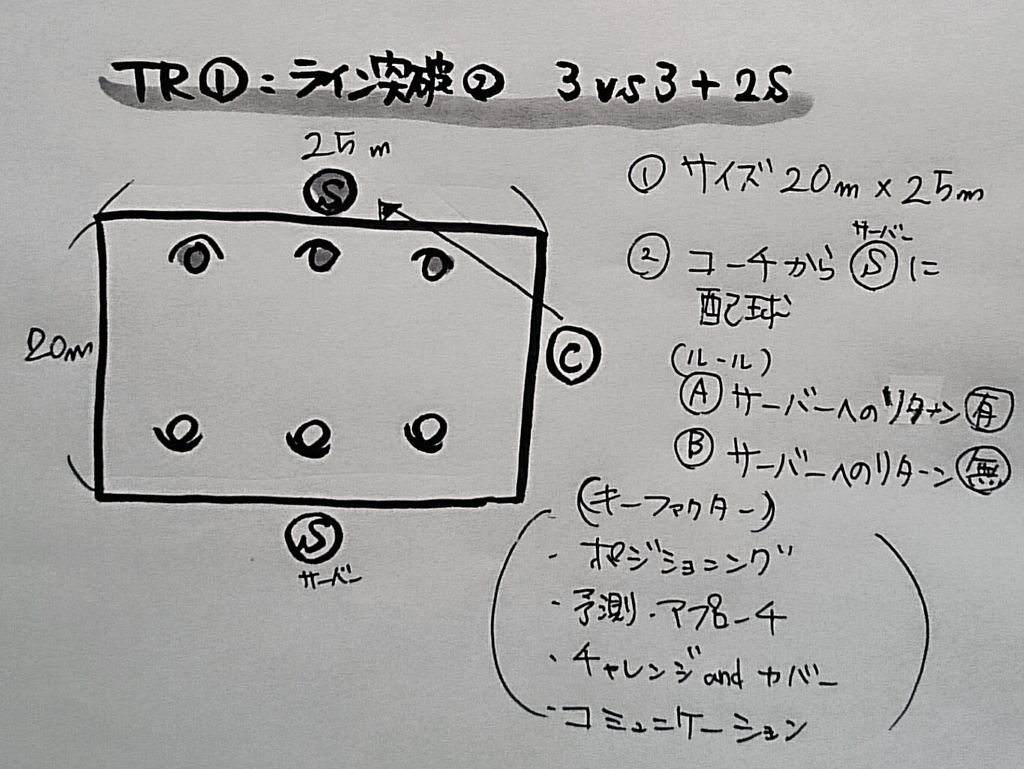 TR①:ライン突破② 3vs3+2S
25m
S
20m
C
S
サーバー
① サイズ 20m×25m
サーバー
② コーチから Ⓢ に
配球
(ルール)
Ⓐ サーバーへのリターン 有
Ⓑ サーバーへのリターン 無
(キーファクター)
・ポジショニング
・予測・アプローチ
・チャレンジ and カバー
・コミュニケーション